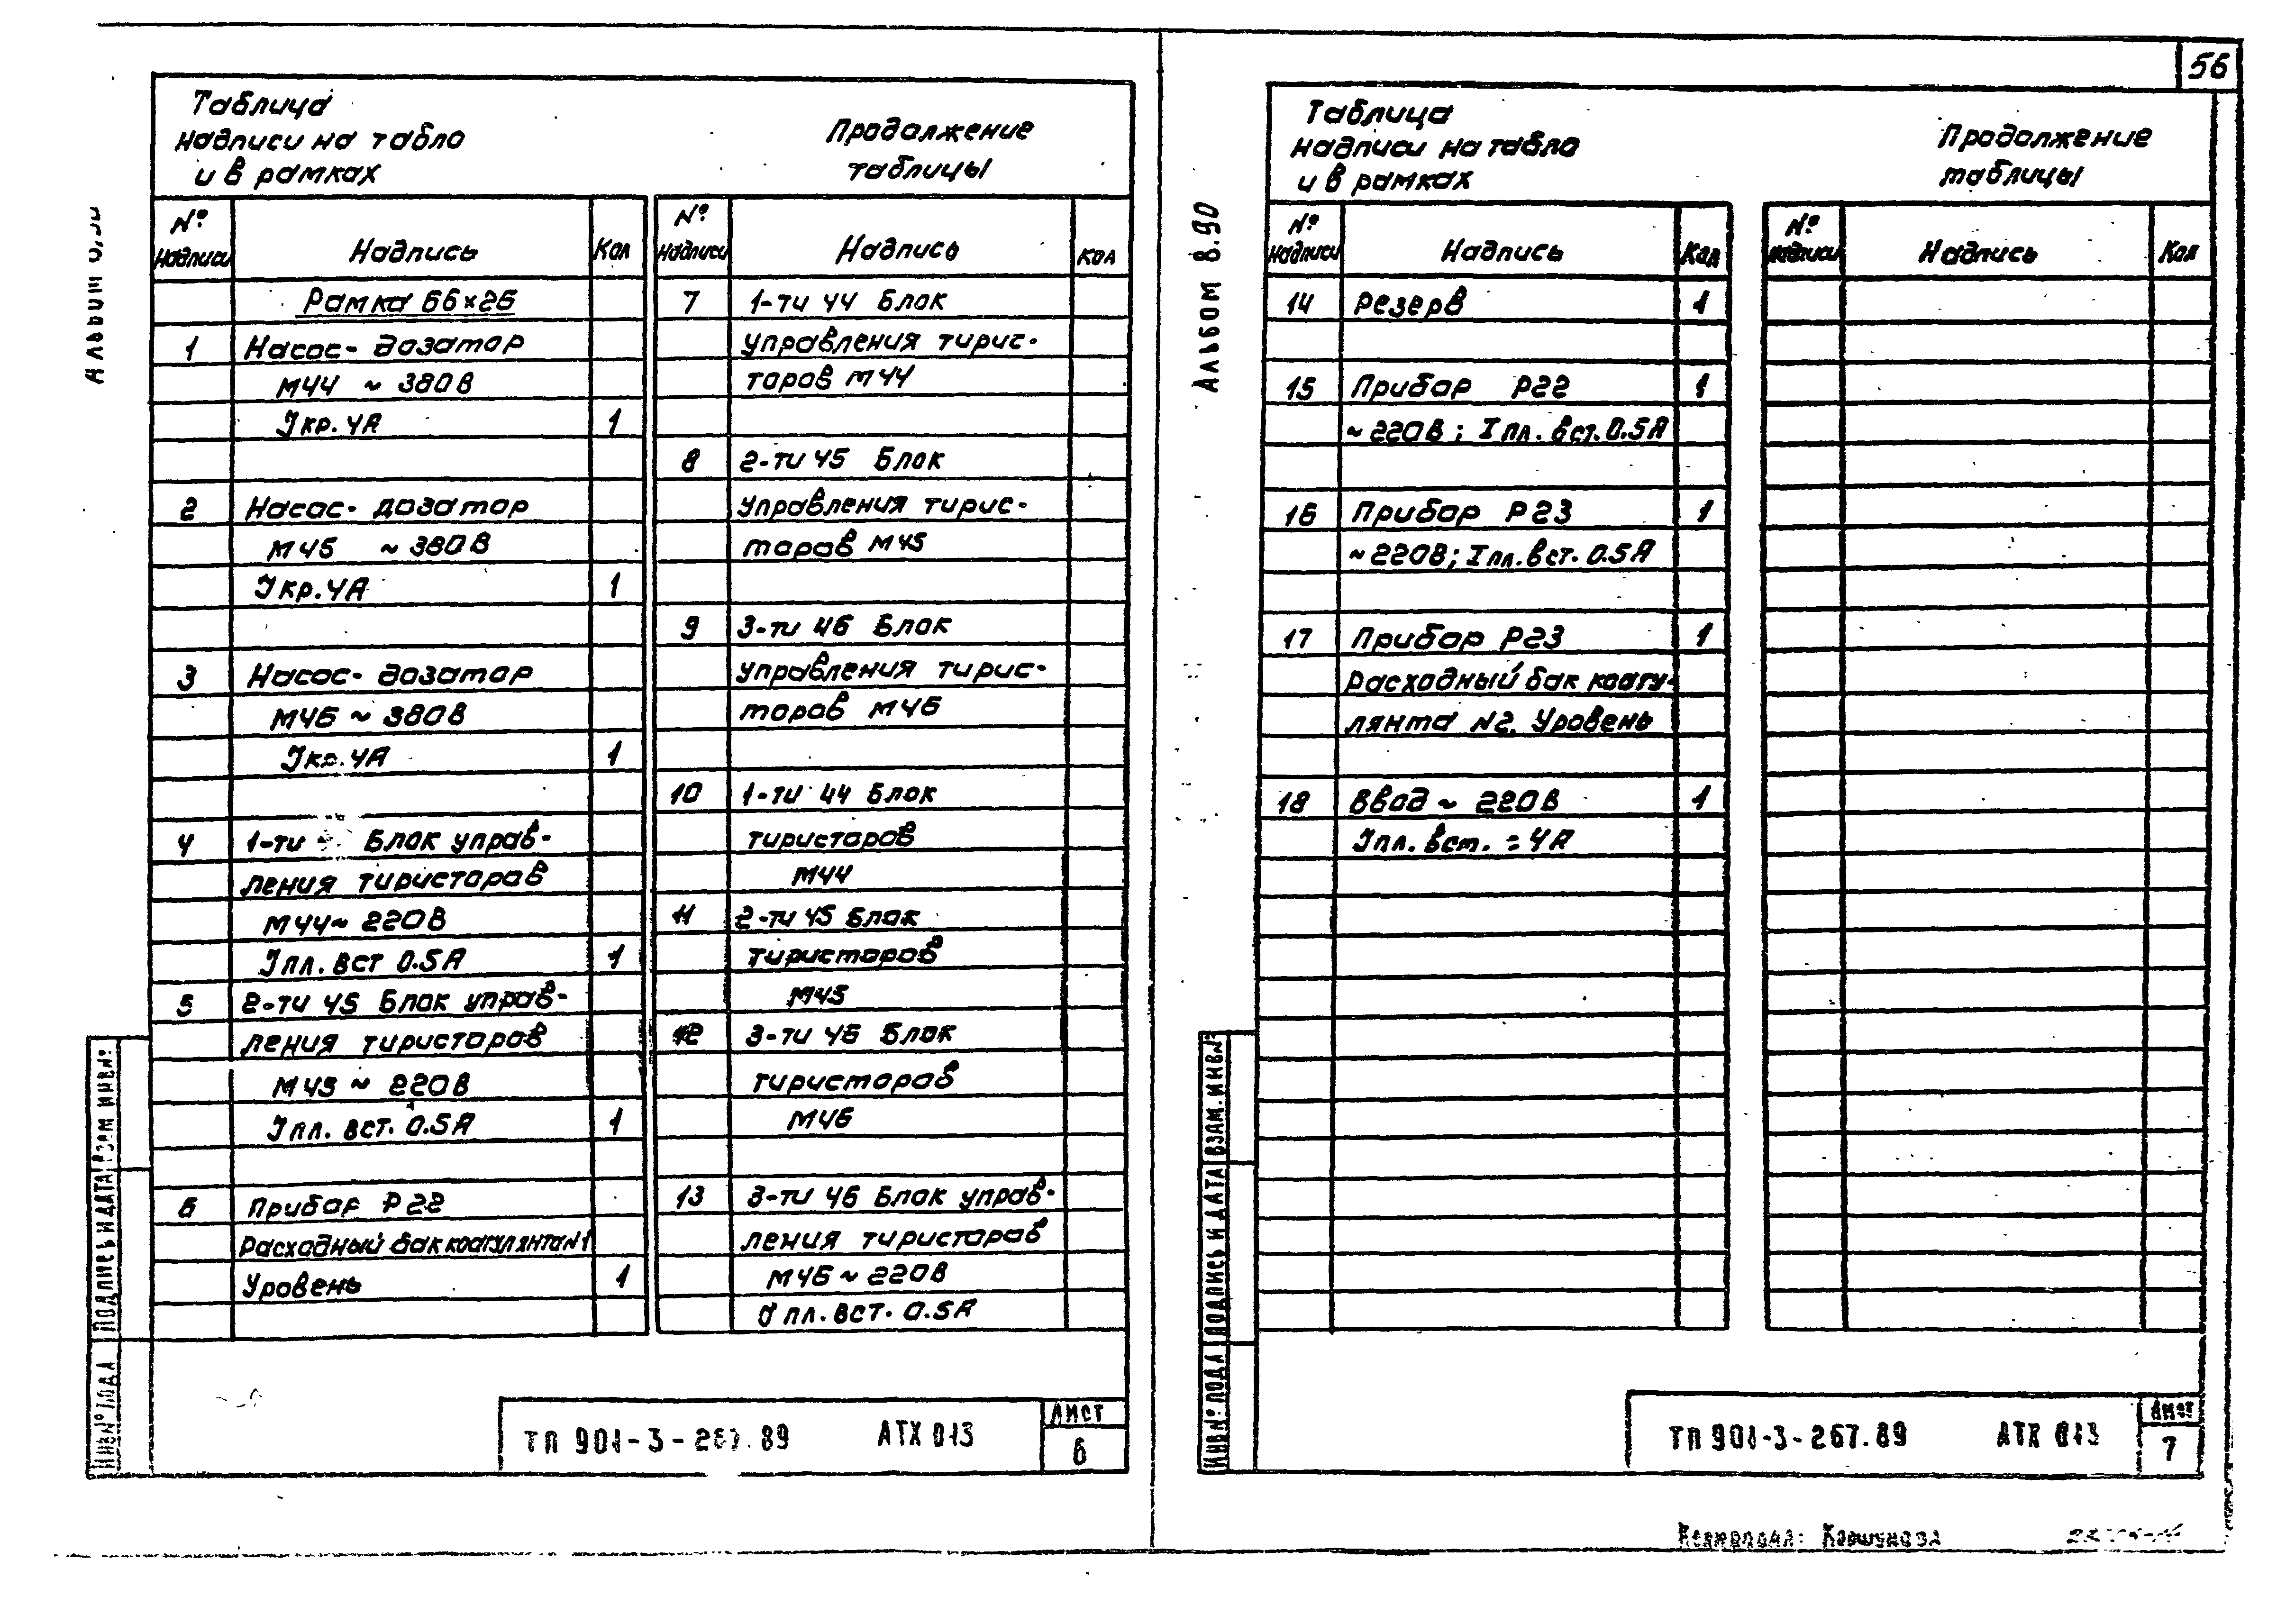 56
Таблица
надписи на табло
и в рамках
Продолжение
таблицы
№ надписи Надпись Кол
Рамка 66×26
1 Насос-дозатор
М44 ~ 380В
Iкр. 4А 1
2 Насос-дозатор
М45 ~ 380В
Iкр. 4А 1
3 Насос-дозатор
М46 ~ 380В
Iкр. 4А 1
4 1-ти Блок управ-
ления тиристоров
М44 ~ 220В
Iпл. вст 0.5А 1
5 2-ти 45 Блок управ-
ления тиристоров
М45 ~ 220В
Iпл. вст. 0.5А 1
6 Прибор Р22
Расходный бак коагулянта №1
Уровень 1
№ надписи Надпись Кол
7 1-ти 44 Блок
управления тирис-
торов М44
8 2-ти 45 Блок
управления тирис-
торов М45
9 3-ти 46 Блок
управления тирис-
торов М46
10 1-ти 44 Блок
тиристоров
М44
11 2-ти 45 Блок
тиристоров
М45
12 3-ти 46 Блок
тиристоров
М46
13 3-ти 46 Блок управ-
ления тиристоров
М46 ~ 220В
Iпл. вст. 0.5А
Альбом
Взам инв №
Подпись и дата
Инв № подл
ТП 901-3-267.89 АТХ 013
Лист
6
Таблица
надписи на табло
и в рамках
Продолжение
таблицы
№ надписи Надпись Кол
14 Резерв 1
15 Прибор Р22 1
~220В; Iпл. вст. 0.5А
16 Прибор Р23 1
~220В; Iпл. вст. 0.5А
17 Прибор Р23 1
Расходный бак коагу-
лянта №2. Уровень
18 Ввод ~ 220В 1
Iпл. вст. = 4А
№ надписи Надпись Кол
Альбом 8.90
Взам. инв №
Подпись и дата
Инв № подл
ТП 901-3-267.89 АТХ 013
Лист
7
Копировал: Коршунова